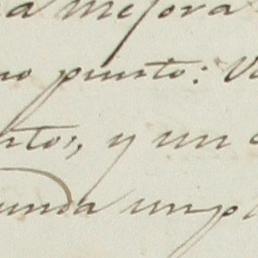 a mejora
no punto: V
ntos, y un
unda un pl